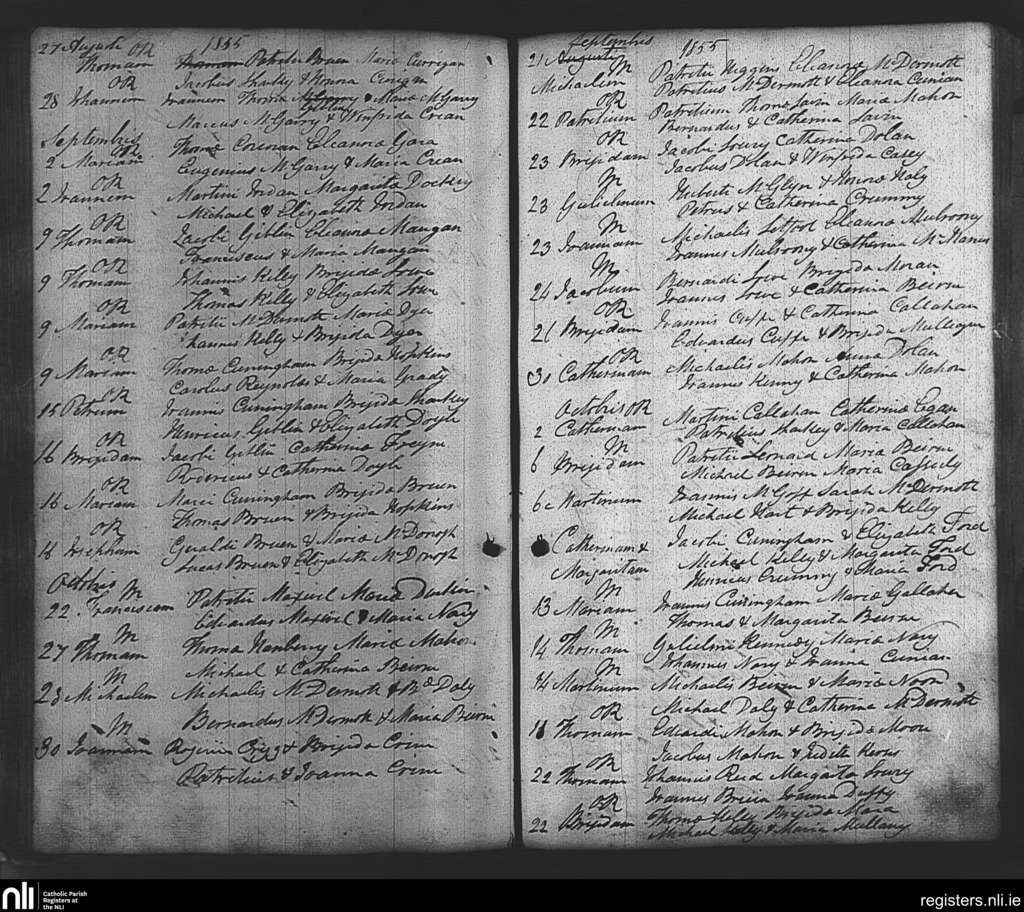 1855
27 Augusti OR
Thomam Patritii Bruen Maria Currigan
OR Jacobus Sharky & Honora Corigan
28 Johannem Joannem Thoma McGarry & Maria McGarry
Marcus McGarry & Winfrida Crean
Septembris
OR
2 Mariam Thoma Corcoran Eleanora Gara
Eugenius McGarry & Maria Crean
OR
2 Joannem Martini Jordan Margarita Dockery
Michael & Elizabeth Jordan
OR
9 Thomam Jacobi Giblin Eleanora Mangan
Franciscus & Maria Mangan
OR
9 Thomam Johannis Kelly Brigida Lowe
Thomas Kelly & Elizabeth Lowe
OR
9 Mariam Patritii McDermott Maria Dyer
Kelly & Brigida Dyer
OR
9 Mariam Thoma Cuningham Brigida Hopkins
Carolus Reynolds & Maria Grady
OR
15 Petrum Joannis Cuningham Brigida Sharkey
Giblin & Elizabeth Doyle
OR
16 Brigidam Jacobi Giblin Catherina
Rodericus & Catherina Doyle
OR
16 Mariam Marci Cuningham Brigida Bruen
Thomas Bruen & Brigida Hopkins
OR
18 Geraldi Bruen & Maria McDonogh
Lucas Bruen & Elizabeth McDonogh
Octobris
M
22 Franciscum Patritii Maxwel Maria Durkin
Edwardus Maxwel & Maria Nary
M
27 Thomam Thoma Hanberry Maria Mahon
Michael & Catherina Beirne
M
28 Michaelem Michaelis McDermott & Bda Daly
Bernardus McDermott & Maria Beirne
M
30 Joannam & Brigida
Patricius & Joanna
Septembris 1855
21 Augusti
M
Michaelem Patritii Higgins Eleanora McDermott
Patritius McDermott & Eleanora Cunian
OR
22 Patritium Patritium Thoma Lavin Maria Mahon
Bernardus & Catherina Lavin
OR
23 Brigidam Jacobi Lowry Catherina Dolan
Jacobus Dolan & Winfrida Casey
M
23 Gulielmum Huberti McGlyn & Honora Haly
Petrus & Catherina Crummy
M
23 Joannam Michaelis Eleanora Mulroony
Joannes Mulroony & Catherina McManus
M
24 Jacobum Bernardi Lowe Brigida Moran
Joannes Lowe & Catherina Beirne
OR
26 Brigidam Joannis Cuffe & Catherina Callahan
Edvardus Cuffe & Brigida
OR
30 Catherinam Michaelis Mahon Anna Dolan
Joannes Kenny & Catherina Mahon
Octobris OR
2 Catherinam Martini Callahan Catherina Egan
Patritius Sharkey & Maria Callahan
M
6 Brigidam Patritii Lennard Maria Beirne
Michael Beirne Maria Cassidy
6 Martinum Joannis McGoff Sarah McDermott
Michael Hart & Brigida Kelly
Catherinam & Jacobi Cuningham & Elizabeth Ford
Margaritam Michael Kelly & Margarita Ford
Henricus Crummy & Maria Ford
M
13 Mariam Joannis Cuningham Maria Gallaher
Thomas & Margarita Beirne
M
14 Thomam Gulielmi Kennedy Maria Nary
Johannes Nary & Joanna Cunian
M
14 Martinum Michaelis Beirne & Maria Noon
Michael Daly & Catherina McDermott
OR
18 Thomam Edwardi Mahon & Brigida Moore
Jacobus Mahon & Judith
OR
22 Thomam Johannis Reid Margarita Lowry
Joannes Joanna Duffy
OR
22 Brigidam Thoma Kelly Brigida Mara
Michael Kelly & Maria Mullany
nli
Catholic Parish
Registers at
the NLI
registers.nli.ie